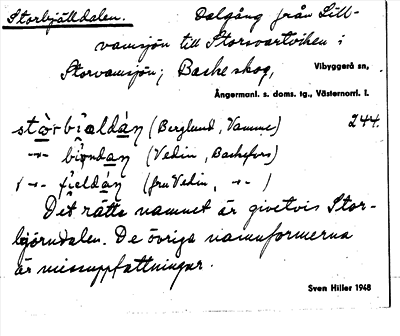 Storbjälldalen. Dalgång från Lill-
vamsjön till Storsvartviken i
Storvamsjön; Backe skog, Vibyggerå sn,
Ångermanl. s. doms. tg., Västernorrl. l.
stòrbìaldán (Berglund, Vamme) 244.
-"- bìǫndan (Vedin, Backefors)
( -"- fieldán (fru Vedin, -"- )
Det rätta namnet är givetvis Stor-
björndalen. De övriga namnformerna
är missuppfattningar.
Sven Hiller 1948